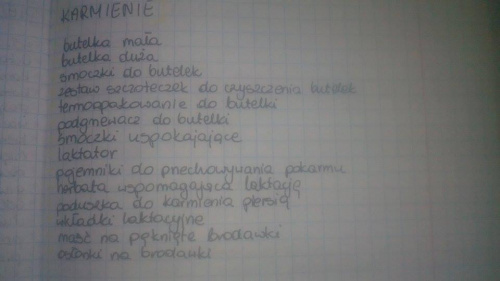 KARMIENIE
butelka mała
butelka duża
smoczki do butelek
zestaw szczoteczek do czyszczenia butelek
termoopakowanie do butelki
podgrzewacz do butelki
smoczki uspokajające
laktator
pojemniki do przechowywania pokarmu
herbata wspomagająca laktację
poduszka do karmienia piersią
wkładki laktacyjne
maść na pęknięte brodawki
osłonki na brodawki